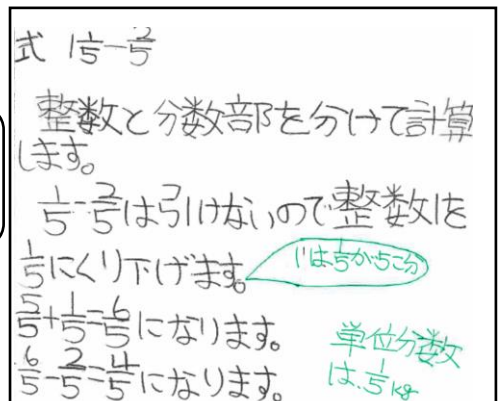 式 1 1/5 − 2/5
整数と分数部を分けて計算
します。
1/5 − 2/5は引けないので整数1を
1/5にくり下げます。
1は1/5が5こ分
5/5+1/5=6/5になります。
6/5−2/5=4/5になります。
単位分数
は、1/5 kg